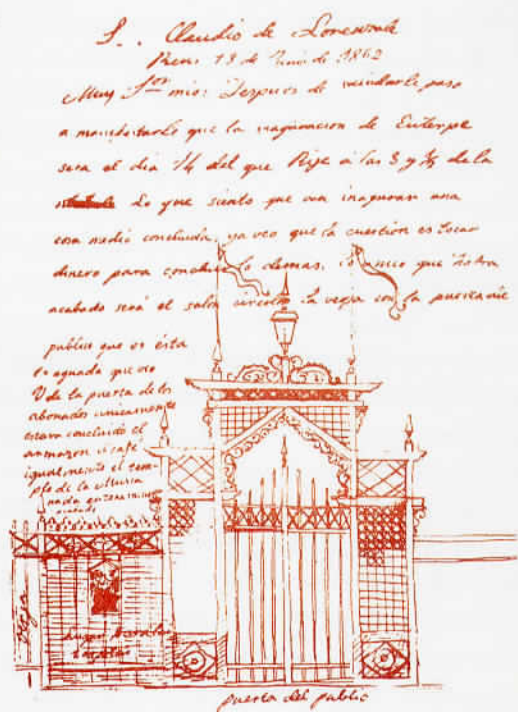 S. . Claudio de Lorenzale
Reus 13 de Junio de 1862
Muy Sor mio: Despues de saludarle paso
a manifestarle que la inaguracion de Euterpe
sera el dia 14 del que Rige á las 8 y ½ de la
Lo que siento que van inagurar una
cosa medio concluida, ya veo que la cuestion es tocar
dinero para concluir lo demas. Lo unico que
acabado será el salon circolo la verja con la puerta del
publico que es ésta
la aguada que veo
V de la puerta de los
abonados unicamente
estara concluido el
armazon el café
igualmente el tem-
plo de la
nada
Verja
Lugar para las
tarjetas
puerta del public